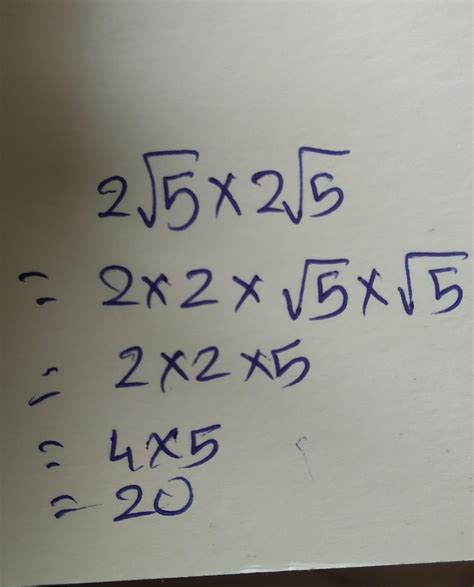 2√5 × 2√5
= 2 × 2 × √5 × √5
= 2 × 2 × 5
= 4 × 5
= 20